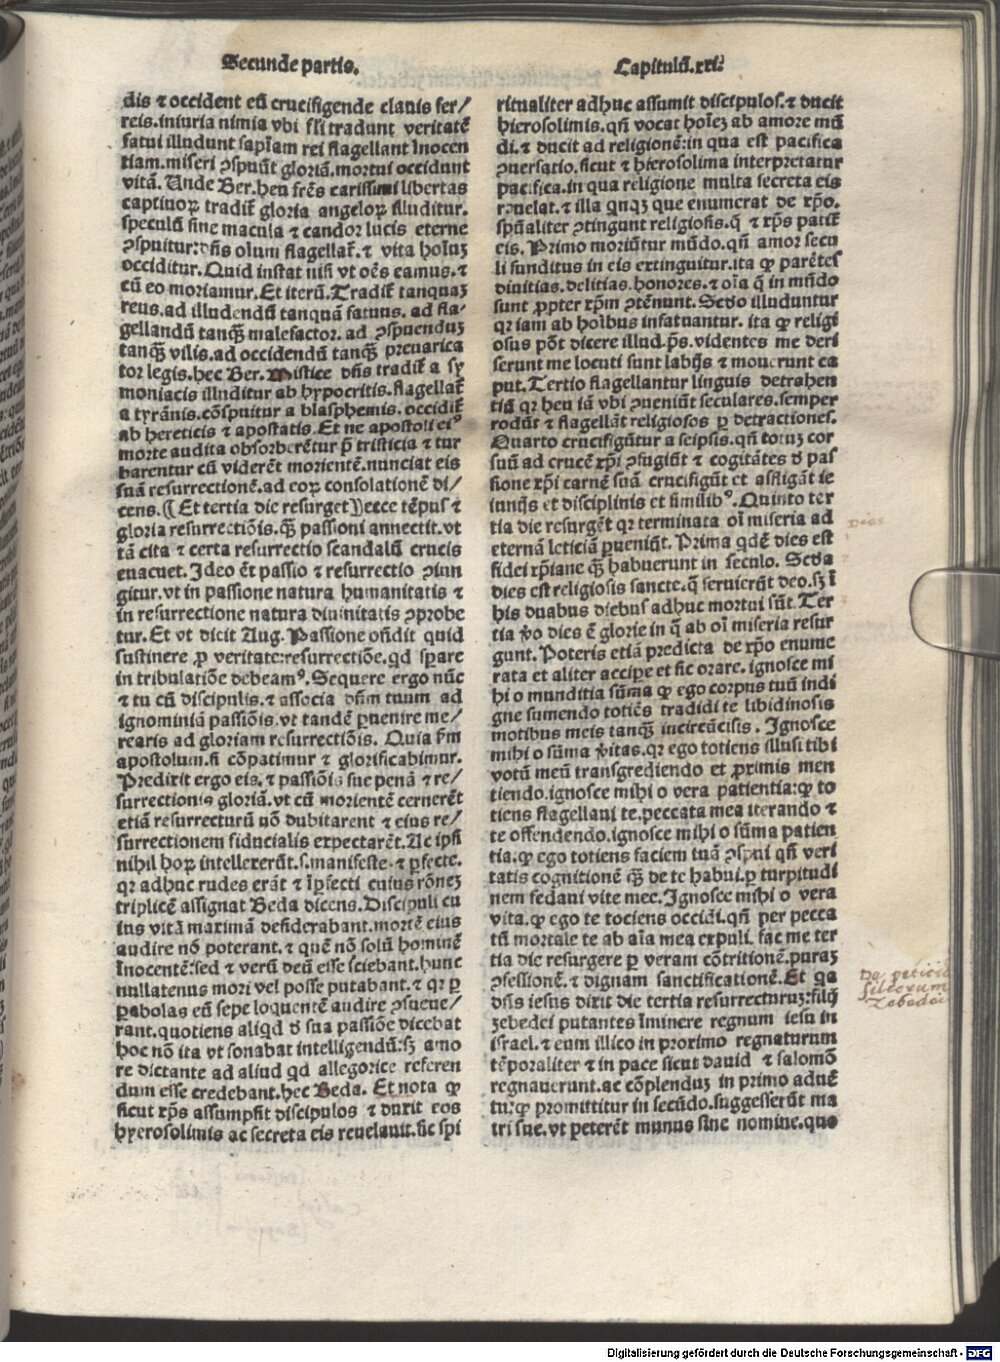 Secunde partis.
Capitulū.xxi.
dis ⁊ occident eū crucifigende clauis fer/
reis.iniuria nimia vbi fili tradunt veritatē
fatui illudunt sapīam rei flagellant īnocen
tiam.miseri ꝯspuūt gloriā.mortui occidunt
vitā. Unde Ber.heu frēs carissimi libertas
captiuoꝝ tradiť gloria angeloꝝ illuditur.
speculū sine macula ⁊ candor lucis eterne
ꝯspuitur:dn̄s olum flagellať.⁊ vita hoīuꝫ
occiditur.Quid instat nisi vt oēs eamus.⁊
cū eo moriamur.Et iterū.Tradiť tanquaꝫ
reus.ad illudendū tanquā fatuus. ad fla/
gellandū tanqꝫ malefactor. ad ꝯspuenduꝫ
tanqꝫ vilis.ad occidendū tanqꝫ preuarica
tor legis.hec Ber. Mistice dn̄s tradiť a sy
moniacis illuditur ab hypocritis.flagellať
a tyrānis.cōspuitur a blasphemis. occidiť
ab hereticis ⁊ apostatis.Et ne apostoli eiꝰ
morte audita obsorberētur p̄ tristicia ⁊ tur
barentur cū viderēt morientē.nunciat eis
suā resurrectionē.ad eoꝝ consolationē di/
cens.(Et tertia die resurget)ecce tēpus ⁊
gloria resurrectiōis.qꝫ passioni annectit.vt
tā cita ⁊ certa resurrectio scandalū crucis
euacuet. Ideo ēt passio ⁊ resurrectio ꝯiun
gitur.vt in passione natura humanitatis ⁊
in resurrectione natura diuinitatis ꝯprobe
tur.Et vt dicit Aug. Passione oñdit quid
sustinere ꝓ veritate:resurrectiōe.qd sꝑare
in tribulatiōe debeamꝰ. Sequere ergo nūc
⁊ tu cū discipulis.⁊ associa dn̄m tuum ad
ignominiā passiōis.vt tandē ꝑuenire me/
rearis ad gloriam resurrectiōis. Quia ẜm
apostolum.si cōpatimur ⁊ glorificabimur.
Predixit ergo eis.⁊ passiōis sue penā ⁊ re/
surrectionis gloriā.vt cū morientē cernerēt
etiā resurrecturū nō dubitarent ⁊ eius re/
surrectionem fiducialis expectarēt.Ac ipsi
nihil hoꝝ intellexerūt.s.manifeste.⁊ ꝑfecte.
qr adhuc rudes erāt ⁊ īꝑfecti cuius rōneꝫ
triplicē assignat Beda dicens.Discipuli cu
ius vitā maximā desiderabant.mortē eius
audire nō poterant.⁊ quē nō solū hominē
īnocentē:sed ⁊ verū deū esse sciebant.hunc
nullatenus mori vel posse putabant.⁊ qr ꝑ
ꝑabolas eū sepe loquentē audire ꝯsueue/
rant.quotiens aliqd ð sua passiōe dicebat
hoc nō ita vt sonabat intelligendū:sꝫ amo
re dictante ad aliud qd allegorice referen
dum esse credebant.hec Beda. Et nota ꝙ
sicut xp̄s assumpsit discipulos ⁊ duxit eos
hyerosolimis ac secreta eis reuelauit.sic spi
ritualiter adhuc assumit discipulos.⁊ ducit
hierosolimis.qn̄ vocat hoīeꝫ ab amore mū
di.⁊ ducit ad religionē:in qua est pacifica
ꝯuersatio.sicut ⁊ hierosolima interpretatur
pacifica.in qua religione multa secreta eis
reuelat.⁊ illa qnqꝫ que enumerat de xp̄o.
spūaliter ꝯtingunt religiosis.q̄ ⁊ xp̄s patiť
eis. Primo moriūtur mūdo.qn̄ amor secu
li funditus in eis extinguitur.ita ꝙ parētes
diuitias.delitias.honores.⁊ oīa q̄ in mūdo
sunt ꝓpter xp̄m ꝯtēnunt. Scðo illuduntur
qr iam ab hoībus infatuantur. ita ꝙ religi
osus pōt dicere illud.ps.videntes me deri
serunt me locuti sunt labijs ⁊ mouerunt ca
put.Tertio flagellantur linguis detrahen
tiū qr heu iā vbi ꝯueniūt seculares.semper
rodūt ⁊ flagellāt religiosos ꝑ detractiones.
Quarto crucifigūtur a seipsis.qn̄ totuꝫ cor
suū ad crucē xp̄i ꝯfugiūt ⁊ cogitātes ð pas
sione xp̄i carnē suā crucifigūt et affligāt ie
iunijs et disciplinis et similibꝰ.Quinto ter
tia die resurgēt qr terminata oī miseria ad
eternā leticiā ꝑueniūt. Prima qdē dies est
fidei xp̄iane qꝫ habuerunt in seculo. Scða
dies est religiosis sancte.q̄ seruierūt deo.sꝫ ī
his duabus diebus adhuc mortui sūt. Ter
tia ṽo dies ē glorie in q̄ ab oī miseria resur
gunt. Poteris etiā predicta de xp̄o enume
rata et aliter accipe et sic orare. ignosce mi
hi o munditia sūma ꝙ ego corpus tuū indi
gne sumendo totiēs tradidi te libidinosis
motibus meis tanqꝫ incircūcisis. Ignosce
mihi o sūma ṽitas.qr ego totiens illusi tibi
votū meū transgrediendo et ꝓximis men
tiendo.ignosce mihi o vera patientia:ꝙ to
tiens flagellaui te.peccata mea iterando ⁊
te offendendo.ignosce mihi o sūma patien
tia.ꝙ ego totiens faciem tuā ꝯspui qn̄ veri
tatis cognitionē qꝫ de te habui.ꝑ turpitudi
nem fedaui vite mee. Ignosce mihi o vera
vita.ꝙ ego te tociens occidi.qn̄ per pecca
tū mortale te ab aīa mea expuli. fac me ter
tia die resurgere ꝑ veram cōtritionē.puraꝫ
ꝯfessionē.⁊ dignam sanctificationē.Et qa
dn̄s iesus dixit die tertia resurrecturuꝫ:filij
zebedei putantes īminere regnum iesu in
israel.⁊ eum illico in proximo regnaturum
tēporaliter ⁊ in pace sicut dauid ⁊ salomō
regnauerunt.ac cōplenduꝫ in primo aduē
tu:ꝙ promittitur in secūdo.suggesserūt ma
tri sue.vt peterēt munus sine nomine.quo
Dies
De peticiōe
filiorum
Zebedei
Digitalisierung gefördert durch die Deutsche Forschungsgemeinschaft - DFG